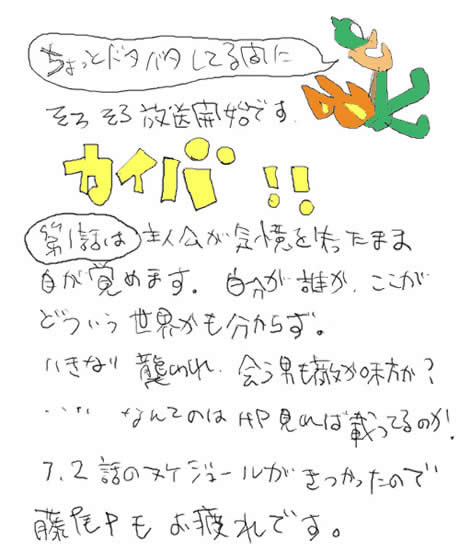 ちょっとドタバタしてる間に
そろそろ放送開始です.
カイバ!!
第1話は主人公が記憶を失ったまま
目が覚めます。自分が誰か、ここが
どういう世界かも分からず。
いきなり襲われ、会う男も敵か味方か?
・・・・ なんてのはHP見れば載ってるのか!
1.2話のスケジュールがきつかったので
藤尾Pもお疲れです。